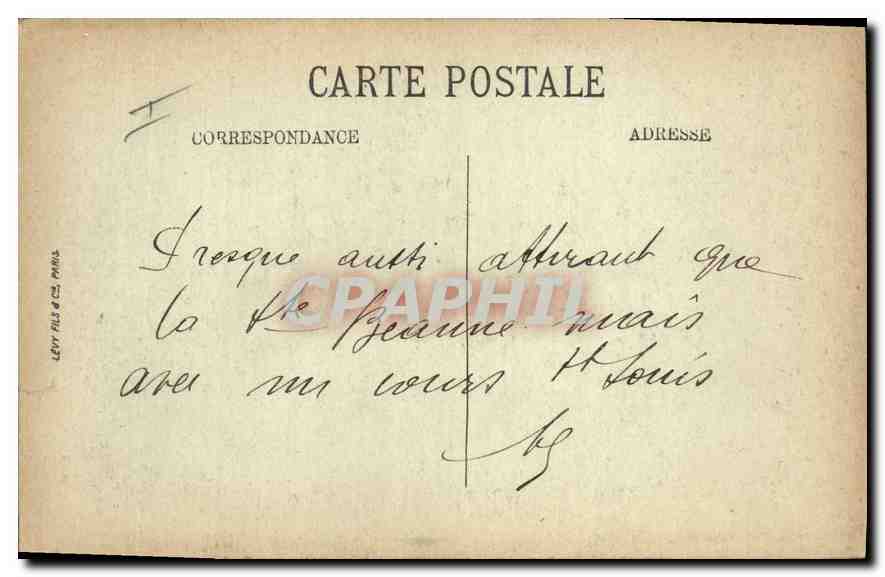 CARTE POSTALE
CORRESPONDANCE
ADRESSE
Presque aussi attirant que
la Ste Beaume mais
avec un cours St Louis
LÉVY FILS & Cie, PARIS
CPAPHIL